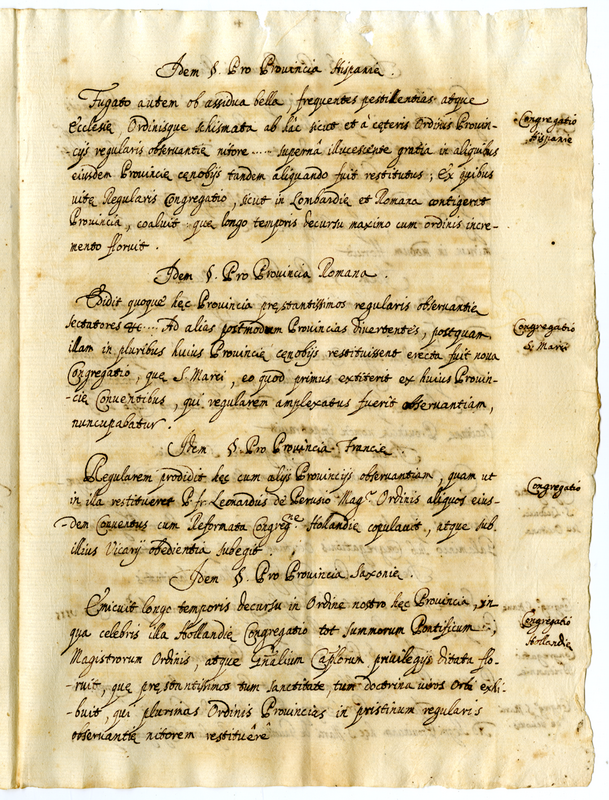 Idem §. Pro Provincia Hispanie.
Fugato autem ob assidua bella, frequentes pestilentias atque
Ecclesie, Ordinisque schismata ab hac sicut et à ceteris Ordinis Provin-
-cijs regularis observantie nitore ..... supernâ illucescente gratia in aliquibus
eiusdem Provincie cenobijs tandem aliquando fuit restitutus; Ex quibus
vite Regularis Congregatio, sicut in Lombardie et Romana contigerat
Provincia, coaluit que longo temporis decursu maximo cum ordinis incre-
mento floruit.
Congregatio
Hispanie
Idem §. Pro Provincia Romana.
Edidit quoque hec Provincia prestantissimos regularis observantie
sectatores &c.... Ad alias postmodum Provincias divertentes, postquam
illam in pluribus huius Provincie cenobijs restituissent erecta fuit nova
Congregatio, que S. Marci, eo quod primus extiterit ex huius Provin-
-cie Conventibus, qui regularem amplexatus fuerit observantiam,
nuncupabatur.
Congregatio
S. Marci
Idem §. Pro Provincia Francie.
Regularem prodidit hec cum alijs Provincijs observantiam, quam ut
in illa restitueret P. fr. Leonardus de Perusio Magr. Ordinis aliquos eius-
-dem Conventus cum Reformata Congregne. Hollandie copulavit, atque sub
illius Vicarij obedientia subegit.
Congregatio
Idem §. Pro Provincia Saxonie.
Emicuit longo temporis decursu in Ordine nostro hec Provincia, in
qua celebris illa Hollandie Congregatio tot summorum Pontificum,
Magistrorum Ordinis, atque Gnalium Caplorum privilegijs ditata flo-
-ruit, que prestantissimos tum sanctitate, tum doctrina viros Orbi exhi-
-buit, qui plurimas Ordinis Provincias in pristinum regularis
observantie nitorem restituêrê
Congregatio
Hollandie